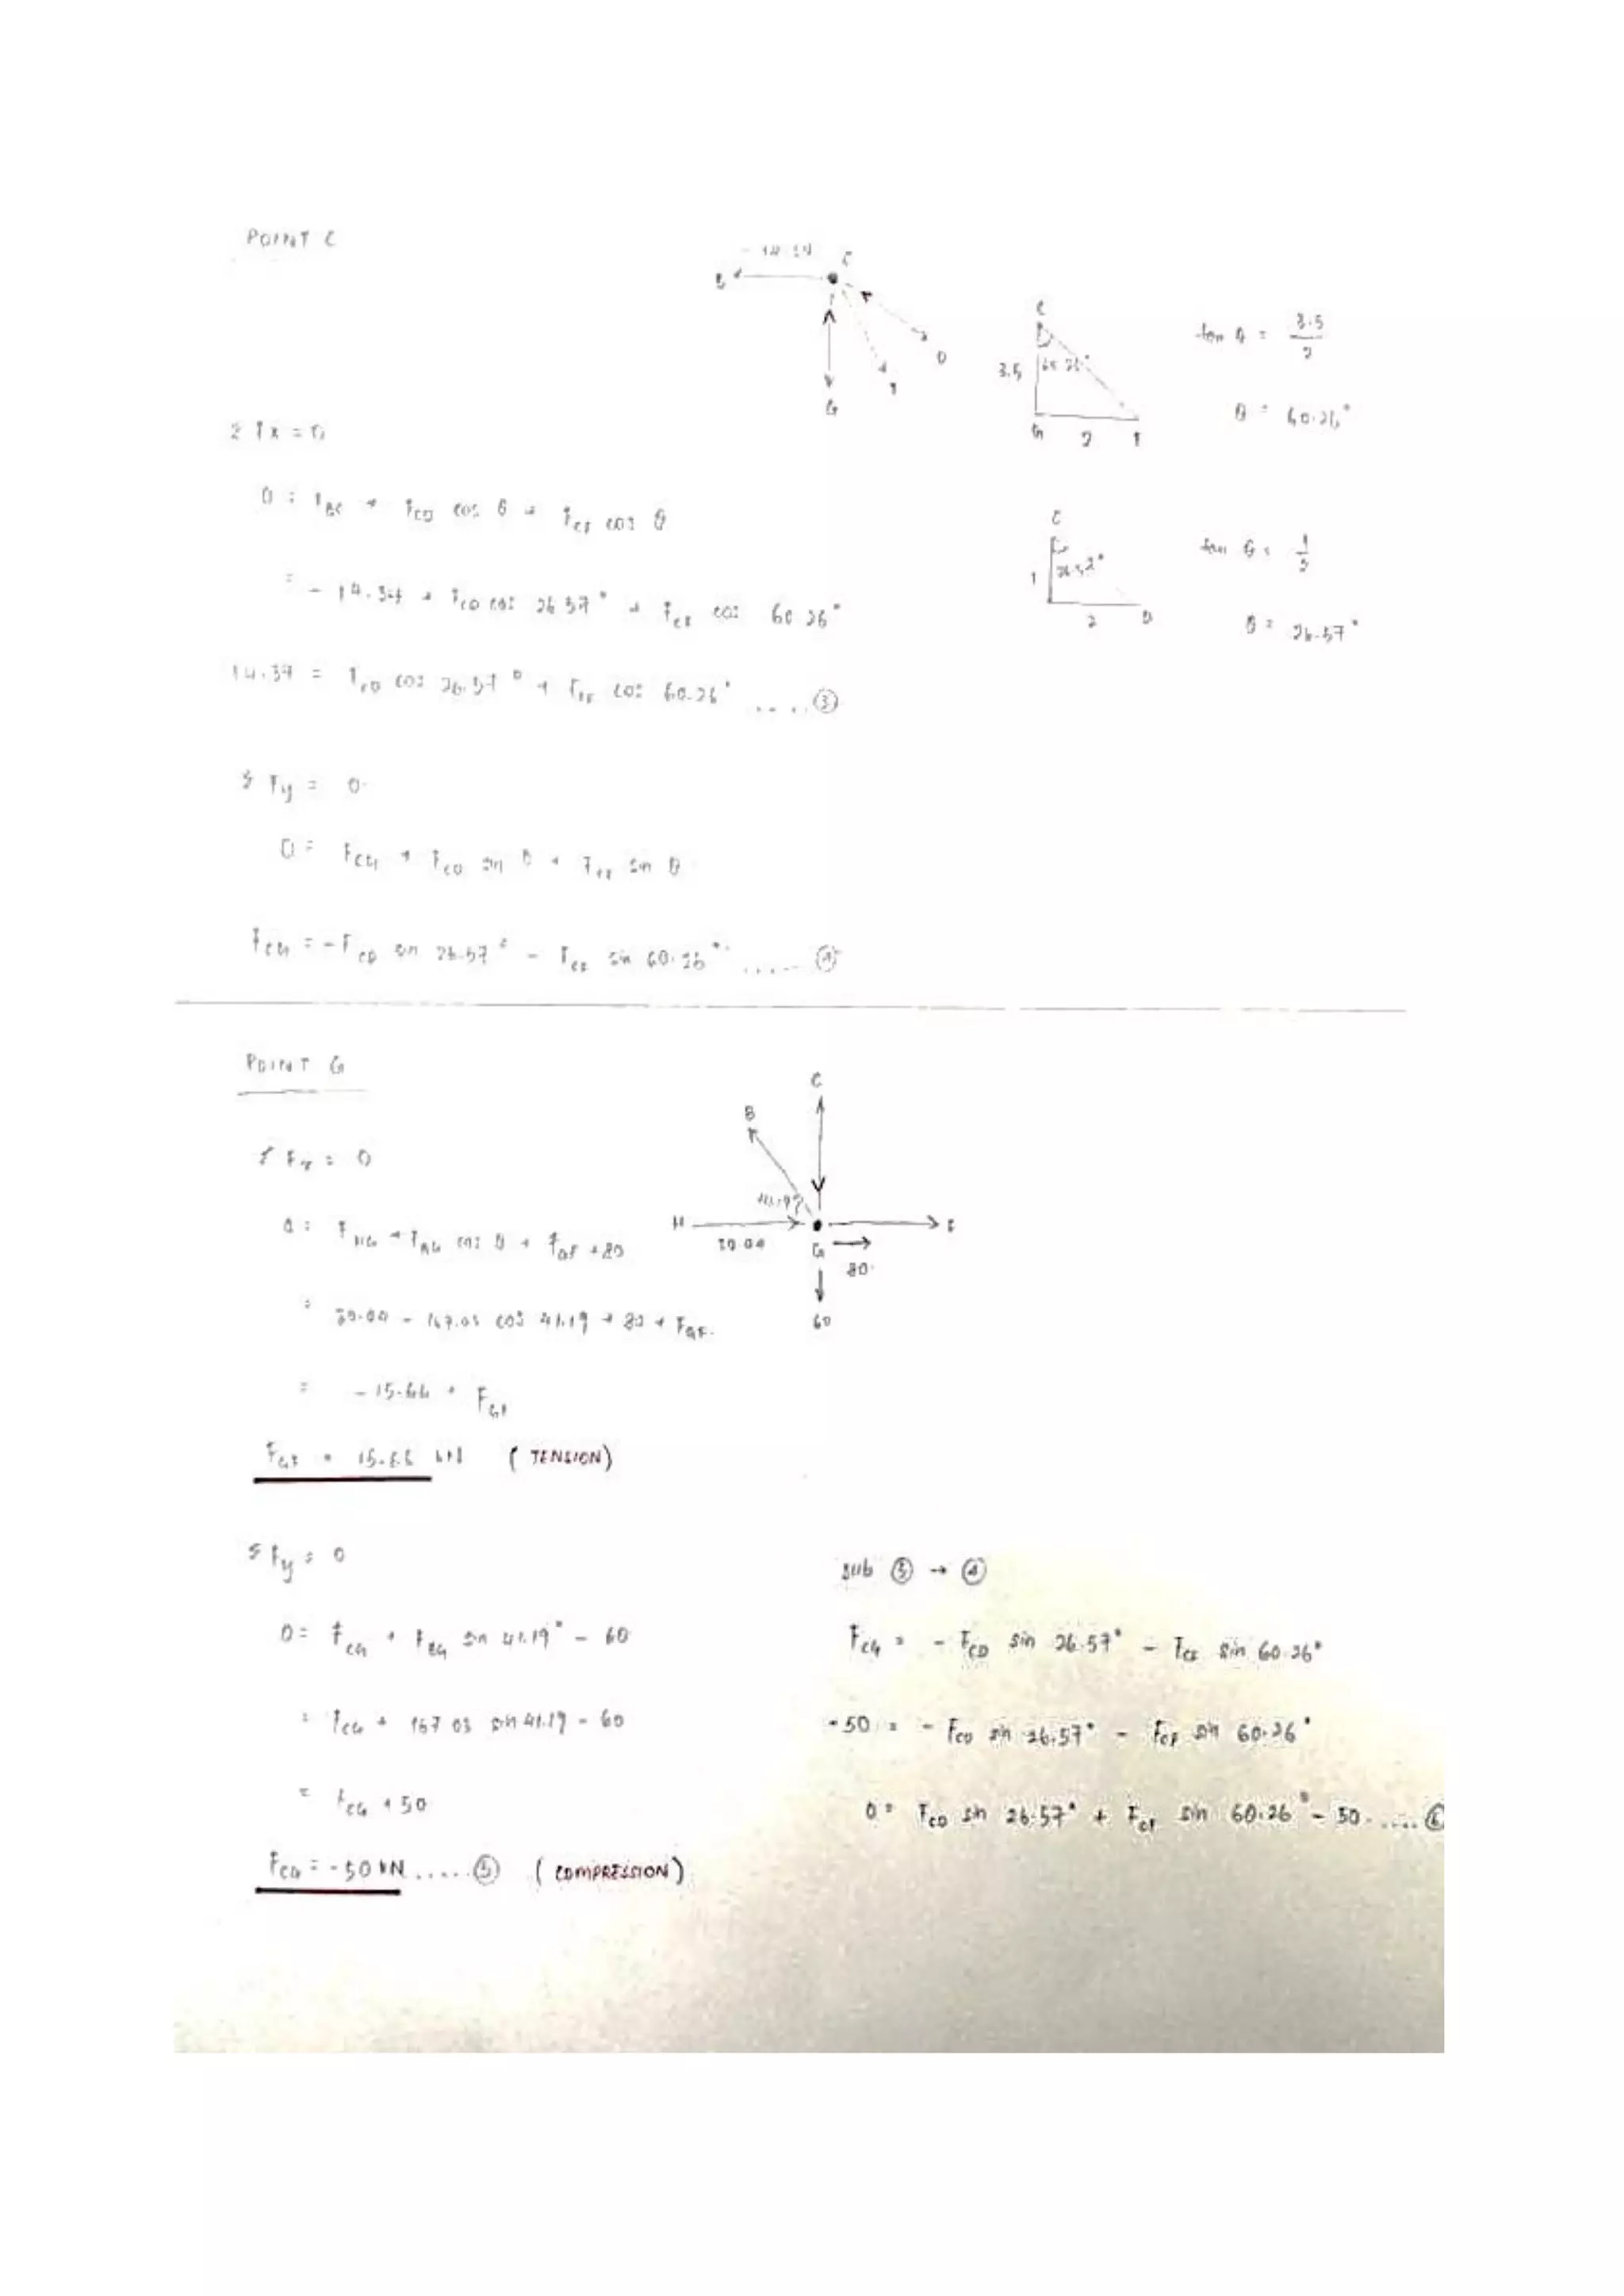 POINT C
C
B
G
F
D
C
3.5
60.26°
G 2 F
tan θ = 3.5/2
θ = 60.26°
Σ Fx = 0
0 = F_BC + F_CD cos θ + F_CF cos θ
= -14.34 + F_CD cos 26.57° + F_CF cos 60.26°
14.34 = F_CD cos 26.57° + F_CF cos 60.26° .... ③
C
1
2 D
tan θ = 1/2
θ = 26.57°
Σ Fy = 0
0 = F_CG + F_CD sin θ + F_CF sin θ
F_CG = -F_CD sin 26.57° - F_CF sin 60.26° ..... ④
POINT G
C
B
41.19°
H
G
F
80
60
Σ Fx = 0
0 = F_HG + F_BG cos θ + F_GF + 80
- 167.03 cos 41.19 + 80 + F_GF
= -15.66 + F_GF
F_GF = 15.66 kN (TENSION)
Σ Fy = 0
0 = F_CG + F_BG sin 41.19° - 60
= F_CG + 167.03 sin 41.19 - 60
= F_CG + 50
F_CG = -50 kN ..... ⑤ (COMPRESSION)
sub ⑤ → ④
F_CG = - F_CD sin 26.57° - F_CF sin 60.26°
-50 = - F_CD sin 26.57° - F_CF sin 60.26°
0 = F_CD sin 26.57° + F_CF sin 60.26° - 50 ..... ⑥